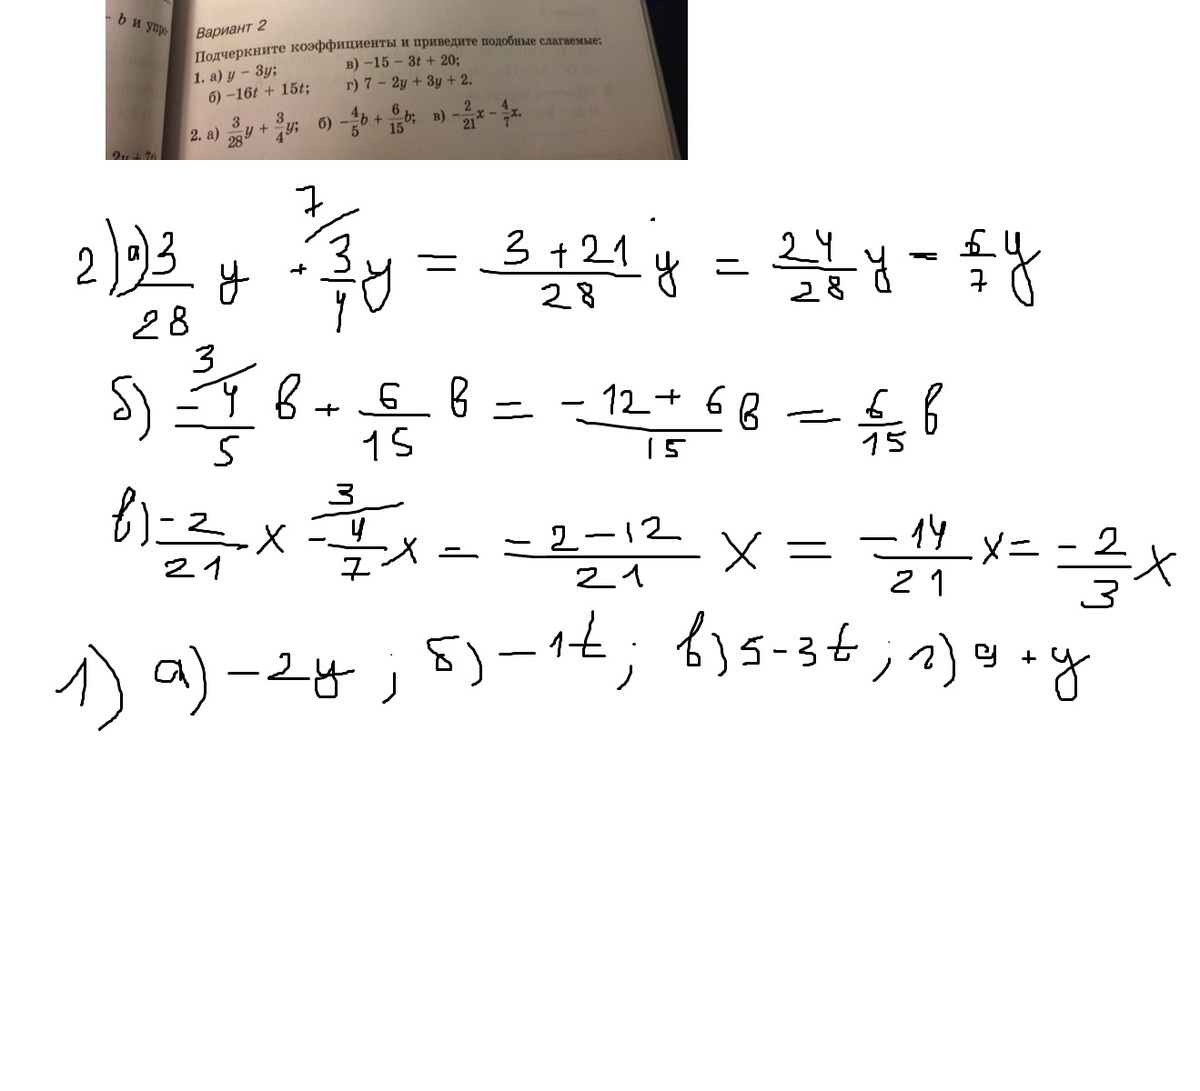 - b и упро-
Вариант 2
Подчеркните коэффициенты и приведите подобные слагаемые:
1. а) y − 3y; в) −15 − 3t + 20;
б) −16t + 15t; г) 7 − 2y + 3y + 2.
2. а) 3/28 y + 3/4 y; б) −4/5 b + 6/15 b; в) −2/21 x − 4/7 x.
2) а) 3/28 y + 7/ 3/4 y = 3 + 21/28 y = 24/28 y = 6/7 y
б) 3/ −4/5 в + 6/15 в = −12 + 6/15 в = 6/15 в
в) −2/21 x 3/ −4/7 x = −2 − 12/21 x = −14/21 x = −2/3 x
1) а) −2y ; б) −1t ; в) 5 − 3t ; г) 9 + y